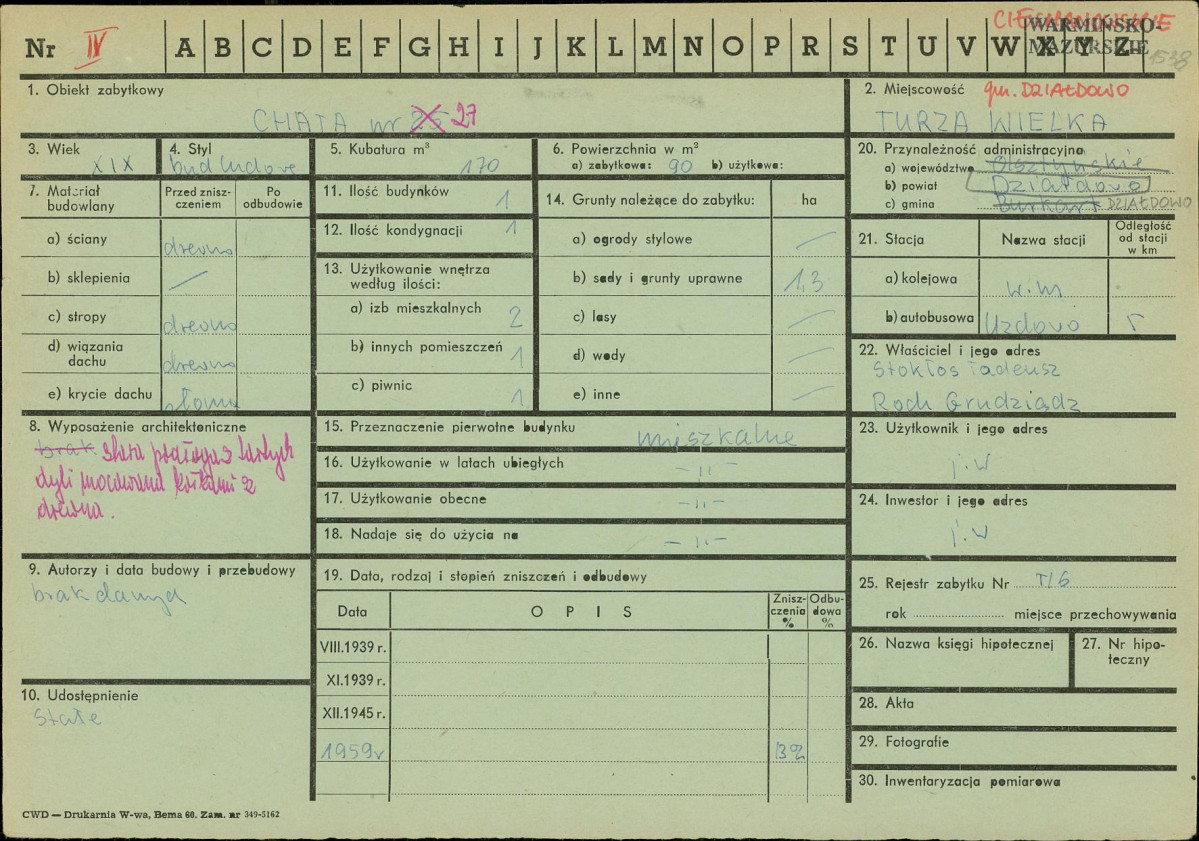 Nr IV A B C D E F G H I J K L M N O P R S T U V W X Y Z
WARMIŃSKO-
MAZURSKIE
1. Obiekt zabytkowy
CHATA nr 25 27
2. Miejscowość gm. DZIAŁDOWO
TURZA WIELKA
3. Wiek
XIX
4. Styl
bud ludowe
5. Kubatura m³
170
6. Powierzchnia w m²
a) zabytkowa: 90 b) użytkowa:
20. Przynależność administracyjna
a) województwo Olsztyńskie
b) powiat Działdowo
c) gmina DZIAŁDOWO
7. Materiał budowlany
Przed zniszczeniem
Po odbudowie
a) ściany drewno
b) sklepienia /
c) stropy drewno
d) wiązania dachu drewno
e) krycie dachu słoma
11. Ilość budynków 1
12. Ilość kondygnacji 1
13. Użytkowanie wnętrza
według ilości:
a) izb mieszkalnych 2
b) innych pomieszczeń 1
c) piwnic 1
14. Grunty należące do zabytku: ha
a) ogrody stylowe —
b) sady i grunty uprawne 1,3
c) lasy —
d) wody —
e) inne —
21. Stacja
Nazwa stacji
Odległość
od stacji
w km
a) kolejowa w.m
b) autobusowa Uzdowo 5
22. Właściciel i jego adres
Stokłos Tadeusz
Roch Grudziądz
8. Wyposażenie architektoniczne
brak. stara podłoga z tartych
dyli mocowana kołkami z
drewna.
15. Przeznaczenie pierwotne budynku mieszkalne
16. Użytkowanie w latach ubiegłych -"-
17. Użytkowanie obecne -"-
18. Nadaje się do użycia na -"-
23. Użytkownik i jego adres
j.w
24. Inwestor i jego adres
j.w
9. Autorzy i data budowy i przebudowy
brak danych
10. Udostępnienie
Stałe
19. Data, rodzaj i stopień zniszczeń i odbudowy
Data
OPIS
Zniszczenia %
Odbudowa %
VIII.1939 r.
XI.1939 r.
XII.1945 r.
1959r 32
25. Rejestr zabytku Nr T/6
rok miejsce przechowywania
26. Nazwa księgi hipotecznej
27. Nr hipoteczny
28. Akta
29. Fotografie
30. Inwentaryzacja pomiarowa
CWD — Drukarnia W-wa, Bema 60. Zam. nr 349-5162